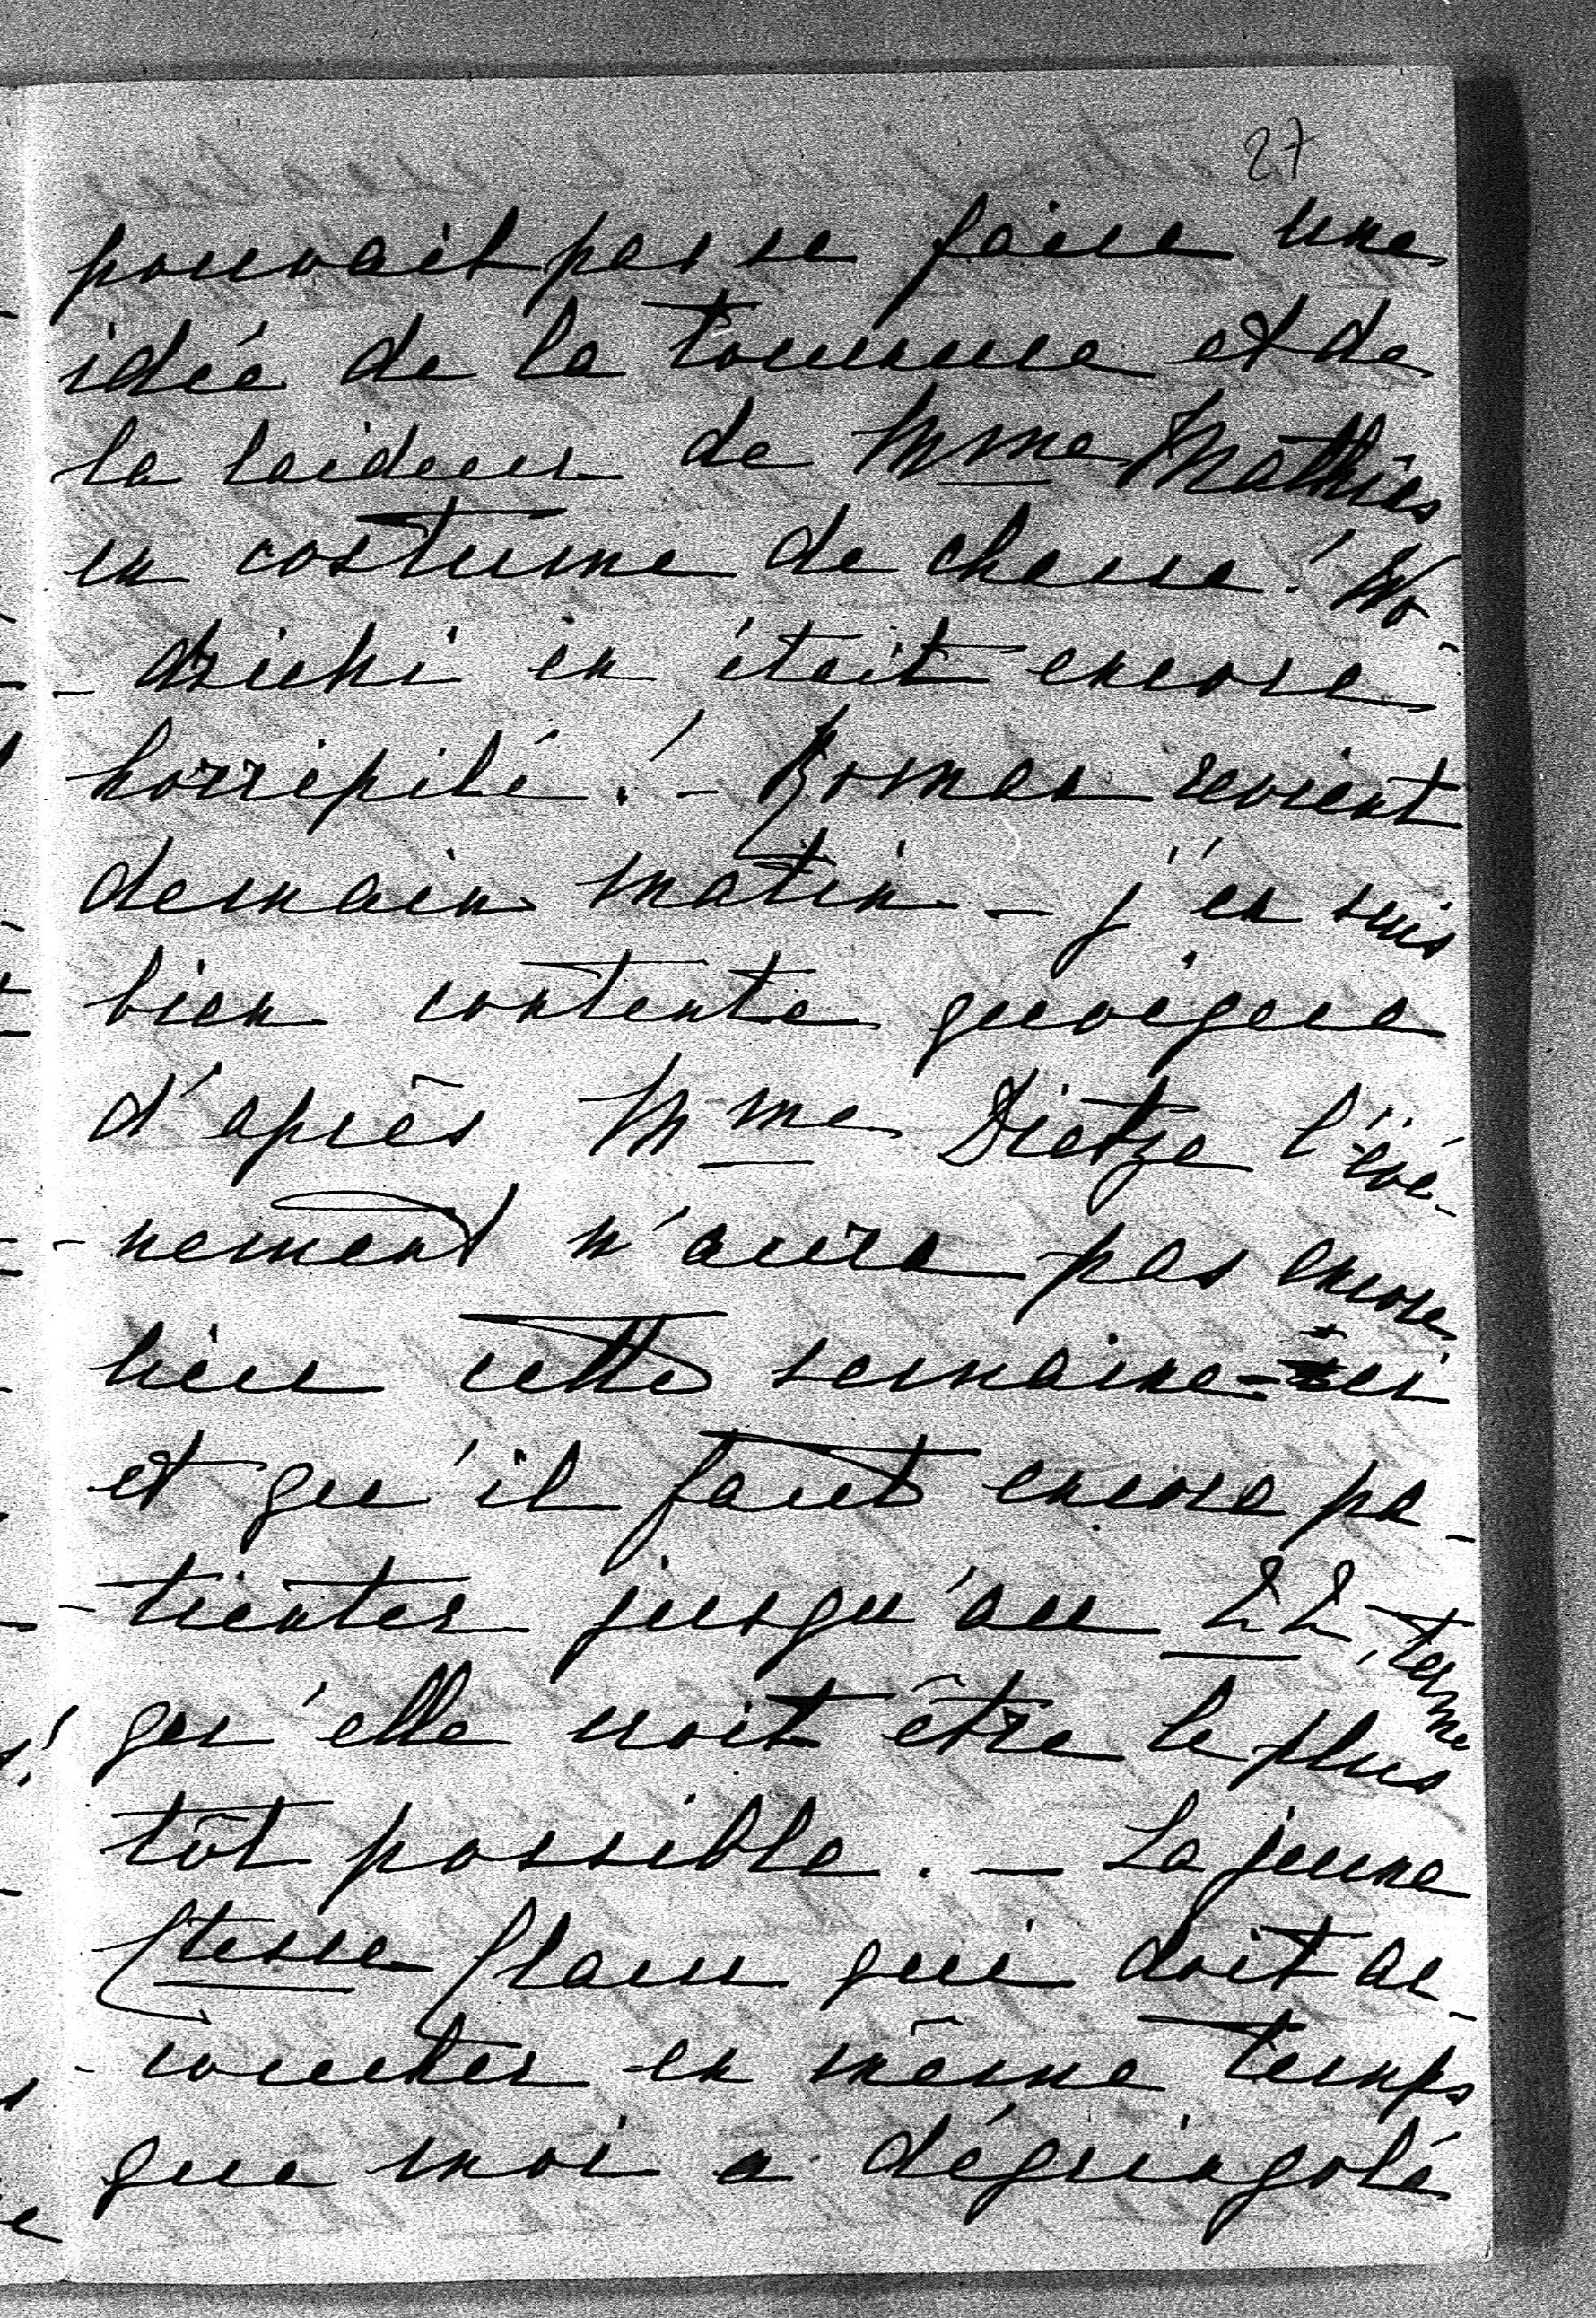 27
pouvait pas se faire une
idée de la tournure et de
la laideur de Mme Mathies
en costume de chasse! Wo-
-dzicki en était encore
horripilé! - Roman revient
demain matin - j'en suis
bien contente quoique
d'après Mme Dietze l'évé-
-nement n'aura pas encore
lieu cette semaine-ci
et qu'il faut encore pa-
-tienter jusqu'au 22, terme
qu'elle croit être le plus
tôt possible. - La jeune
Ctesse Clam qui doit ac-
-coucher en même temps
que moi a dégringolé